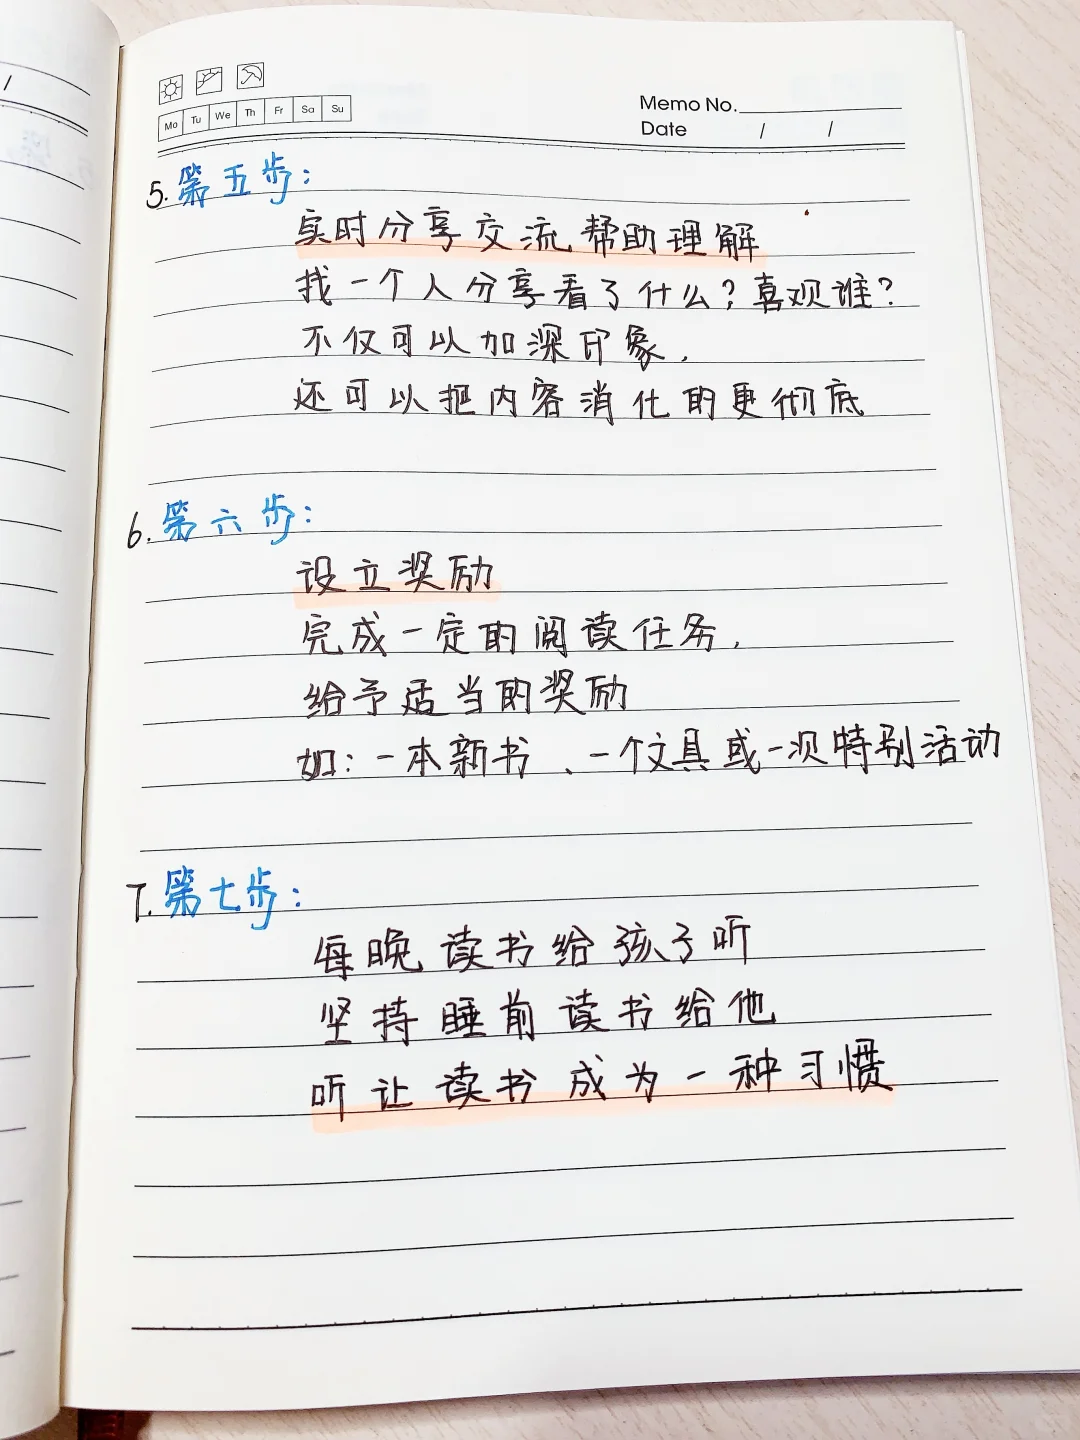 Mo Tu We Th Fr Sa Su
Memo No.
Date / /
5. 第五步:
实时分享交流帮助理解
找一个人分享看了什么?喜观谁?
不仅可以加深印象,
还可以把内容消化的更彻底
6. 第六步:
设立奖励
完成一定的阅读任务,
给予适当的奖励
如:一本新书、一个文具或一次特别活动
7. 第七步:
每晚读书给孩子听
坚持睡前读书给他
听让读书成为一种习惯